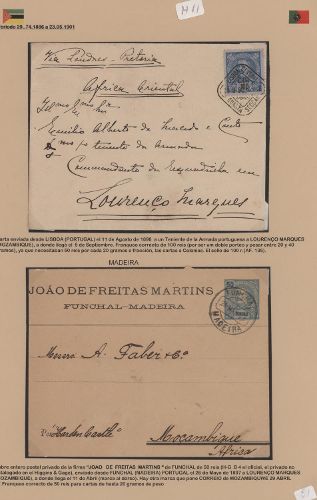 M11
Período 29..74.1896 a 23.05.1901
Via Londres - Pretoria
Africa Oriental
Emilio Alberto de Macedo e Couto
1º tenente da Armada
Commandante da Esquadrilha em
Lourenço Marques
Carta enviada desde LISBOA (PORTUGAL) el 11 de Agosto de 1896 a un Teniente de la Armada portuguesa a LOURENÇO MARQUES
(MOZAMBIQUE), a donde llegó el 6 de Septiembre. Franqueo correcto de 100 reis (por ser un doble porteo y pesar entre 20 y 40
gramos), ya que necesitaban 50 reis por cada 20 gramos o fracción, las cartas a Colonias. El sello de 100 r. (AF. 135).
MADEIRA
JOÃO DE FREITAS MARTINS
FUNCHAL-MADEIRA
FUNCHAL
MADEIRA
Messrs A. Faber & Cº
Por "Hawarden Castle"
Mozambique
Africa
Sobre entero postal privado de la firma "JOAO DE FREITAS MARTINS" de FUNCHAL de 50 reis (H-G. B-4 el oficial, el privado no
catalogado en el Higgins & Gage), enviado desde FUNCHAL (MADEIRA) PORTUGAL el 26 de Mayo de 1897 a LOURENÇO MARQUES
(MOZAMBIQUE), a donde llegó el 11 de Abril (marca al dorso). Hay otra marca que pone CORREIO DE MOZAMBIQUE 29 ABRIL.
Franqueo correcto de 50 reis para cartas de hasta 20 gramos de peso